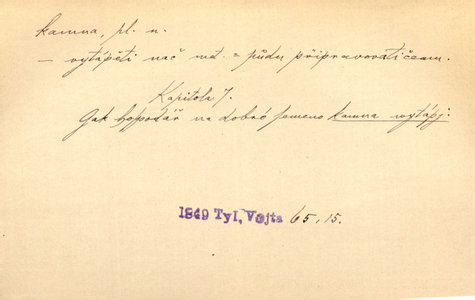 kamna, pl. n.
— vytápěti nač mt. = půdu připravovati čemu.
Kapitola 7.
Jak hospodář na dobré semeno kamna wytápj:
1849 Tyl, Vojta 65, 15.